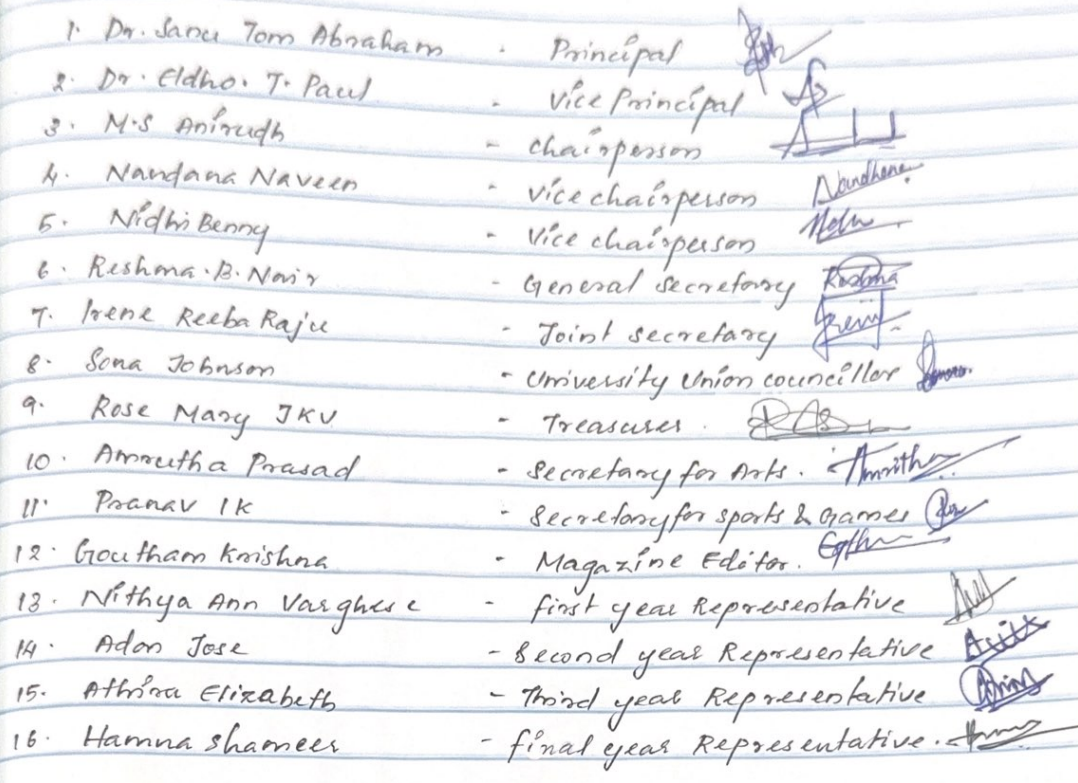 1. Dr. Sanu Tom Abraham - Principal
2. Dr. Eldho. T. Paul - Vice Principal
3. M.S Anirudh - chairperson
4. Nandana Naveen - Vice chairperson Nandhana
5. Nidhi Benny - Vice chairperson
6. Reshma. B. Nair - General Secretary Reshma
7. Irene Reeba Raju - Joint Secretary
8. Sona Johnson - University Union councillor
9. Rose Mary JKV - Treasurer.
10. Amrutha Prasad - Secretary for Arts. Amritha
11. Pranav I K - Secretary for sports & Games
12. Goutham Krishna - Magazine Editor.
13. Nithya Ann Varghese - first year Representative
14. Adon Jose - Second year Representative
15. Athira Elizabeth - Third year Representative
16. Hamna Shameer - final year Representative.